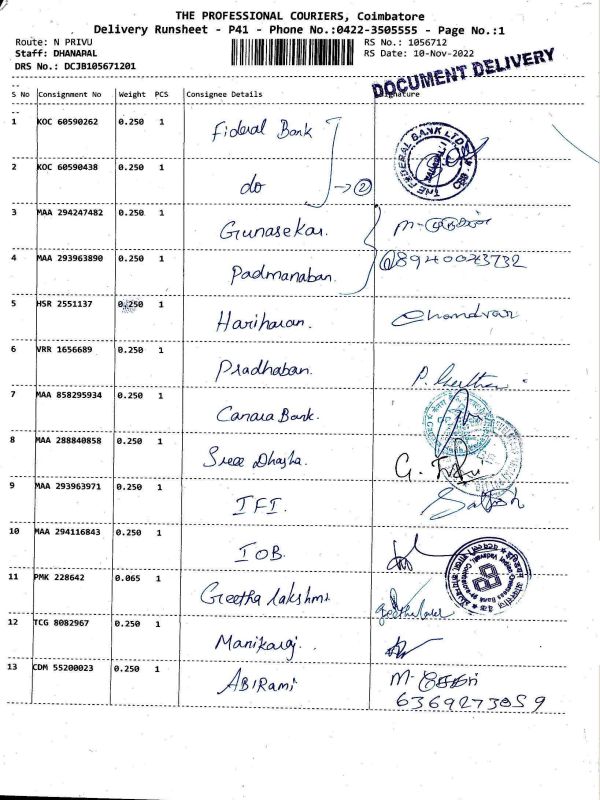 THE PROFESSIONAL COURIERS, Coimbatore
Delivery Runsheet - P41 - Phone No.:0422-3505555 - Page No.:1
Route: N PRIVU
RS No.: 1056712
Staff: DHANAPAL
RS Date: 10-Nov-2022
DRS No.: DCJB105671201
DOCUMENT DELIVERY
S No Consignment No Weight PCS Consignee Details Signature
1 KOC 60590262 0.250 1 Fideral Bank
THE FEDERAL BANK LTD.
2 KOC 60590438 0.250 1 do → 2
3 MAA 294247482 0.250 1 Gunasekar.
4 MAA 293963890 0.250 1 Padmanaban. 8940023732
5 HSR 2551137 0.250 1 Hariharan. Chandran
6 VRR 1656689 0.250 1 Pradhaban.
7 MAA 858295934 0.250 1 Canara Bank.
8 MAA 288840858 0.250 1 Sree Dhasha.
9 MAA 293963971 0.250 1 IFI. Satish
10 MAA 294116843 0.250 1 IOB.
11 PMK 228642 0.065 1 Geetha Lakshmi
12 TCG 8082967 0.250 1 Manikaraj.
13 CDM 55200023 0.250 1 ABIRami
6369273059